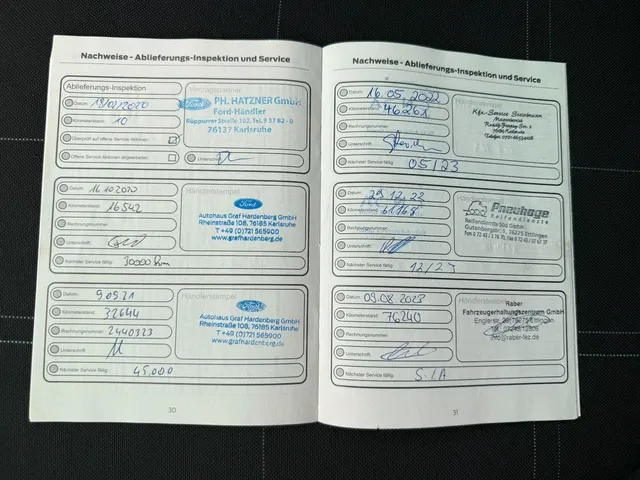 Nachweise - Ablieferungs-Inspektion und Service
Ablieferungs-Inspektion
Datum: 18/02/2020
Kilometerstand: 10
Überprüft auf offene Service-Aktionen:
Offene Service-Aktionen abgearbeitet:
Vertragspartner
Ford
PH. HATZNER GmbH
Ford-Händler
Rüppurrer Straße 102, Tel. 9 37 82-0
76137 Karlsruhe
Unterschrift:
Datum: 16.10.2020
Kilometerstand: 16542
Rechnungsnummer:
Unterschrift:
Nächster Service fällig: 30000 km
Händlerstempel
Ford
Autohaus Graf Hardenberg GmbH
Rheinstraße 108, 76185 Karlsruhe
T +49 (0)721 565900
www.grafhardenberg.de
Datum: 9.09.21
Kilometerstand: 32644
Rechnungsnummer: 2440323
Unterschrift:
Nächster Service fällig: 45.000
Händlerstempel
Ford
Autohaus Graf Hardenberg GmbH
Rheinstraße 108, 76185 Karlsruhe
T +49 (0)721 565900
www.grafhardenberg.de
30
Nachweise - Ablieferungs-Inspektion und Service
Datum: 16.05.2022
Kilometerstand: 46261
Rechnungsnummer:
Unterschrift:
Nächster Service fällig: 05/23
Händlerstempel
Kfz-Service
Datum:
Kilometerstand: 61168
Rechnungsnummer:
Unterschrift:
Nächster Service fällig:
Händlerstempel
Reifendienste
Reifendienste Süd GmbH
76275 Ettlingen
Datum: 09.08.2023
Kilometerstand: 76240
Rechnungsnummer:
Unterschrift:
Nächster Service fällig:
Händlerstempel
Raber
Fahrzeugerhaltungszentrum GmbH
info@raber-fez.de
31